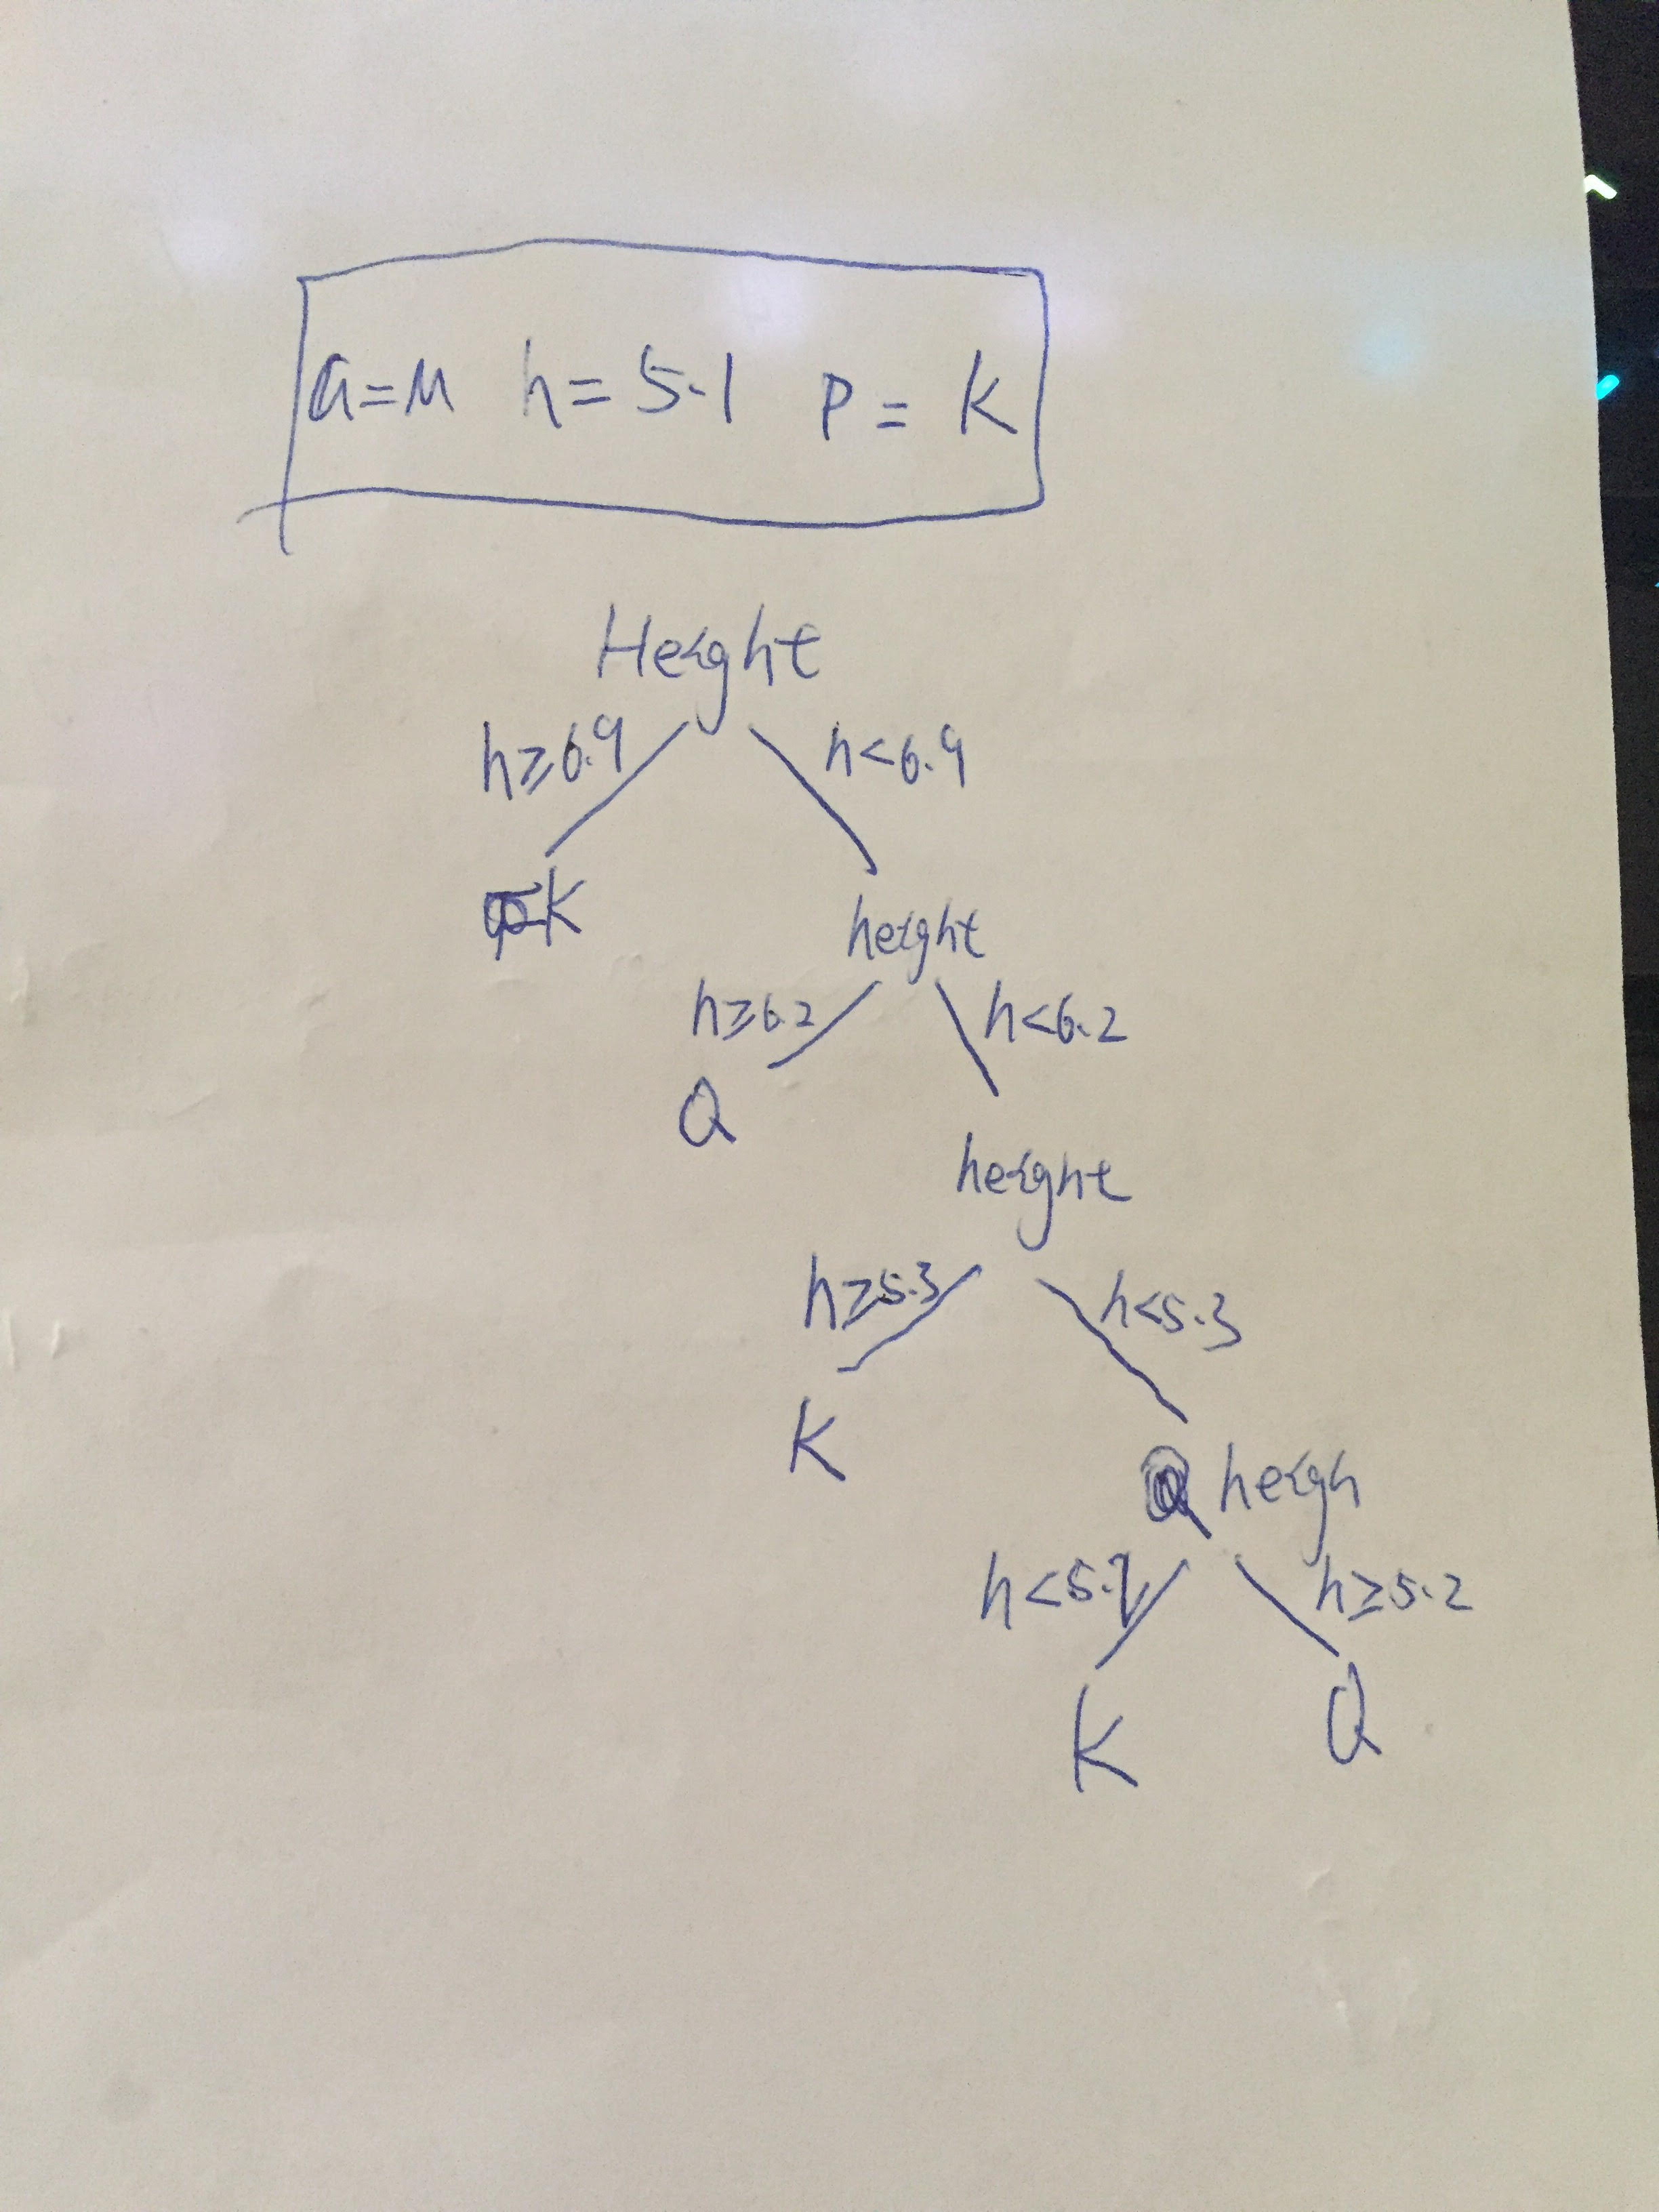 a=M h=5.1 P=K
Height
h≥6.9 h<6.9
K height
h≥6.2 h<6.2
Q
height
h≥5.3 h<5.3
K
heigh
h<5.2 h≥5.2
K Q